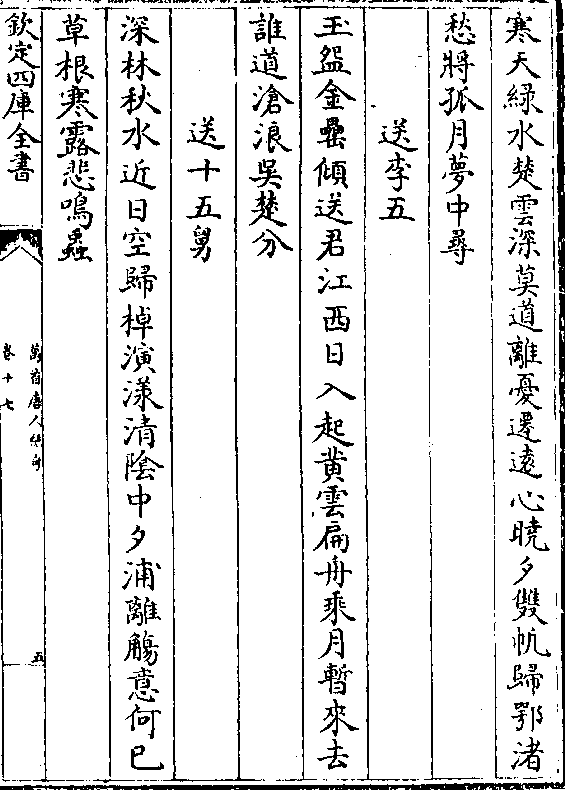 寒天緑水楚雲深莫道離憂遷逺心曉夕雙帆歸鄂渚
愁將孤月夢中尋
送李五
玉盌金罍傾送君江西日入起黄雲扁舟乘月暫來去
誰道滄浪吳楚分
送十五舅
深林秋水近日空歸棹演漾清陰中夕浦離觴意何已
草根寒露悲鳴蟲
欽定四庫全書
萬首唐人絶句
卷十七
五